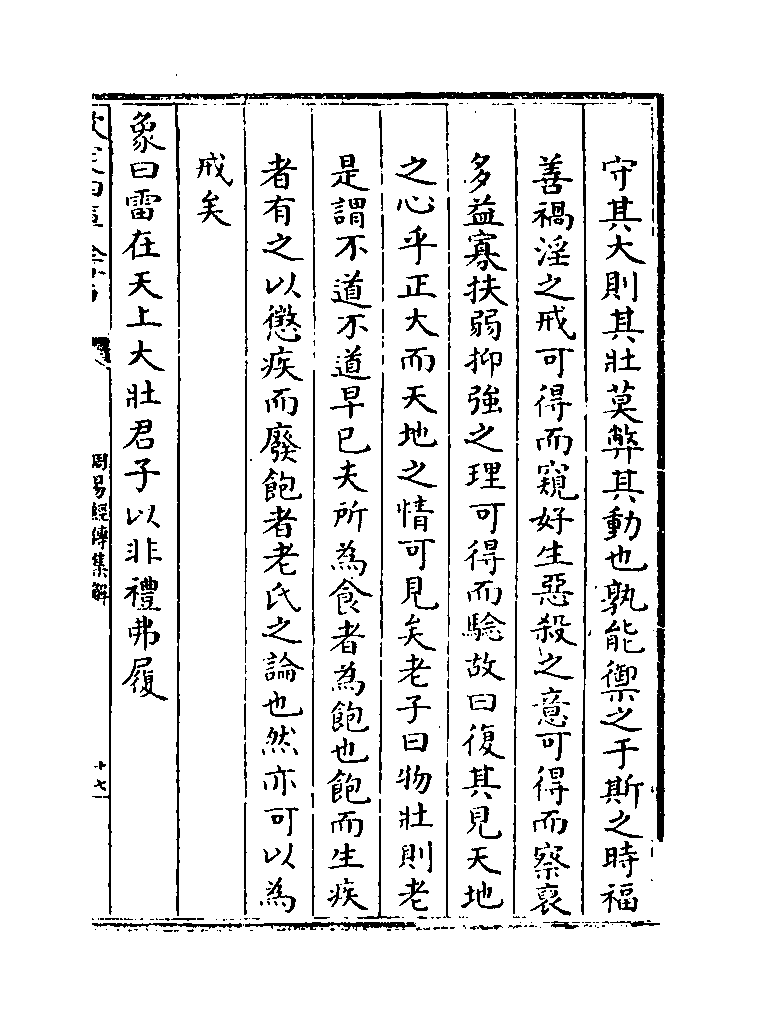 守其大則其壯莫弊其動也孰能禦之于斯之時福
善禍淫之戒可得而窺好生惡殺之意可得而察裒
多益寡扶弱抑強之理可得而驗故曰復其見天地
之心乎正大而天地之情可見矣老子曰物壯則老
是謂不道不道早已夫所為食者為飽也飽而生疾
者有之以懲疾而廢飽者老氏之論也然亦可以為
戒矣
象曰雷在天上大壯君子以非禮弗履
周易經傳集解
十七